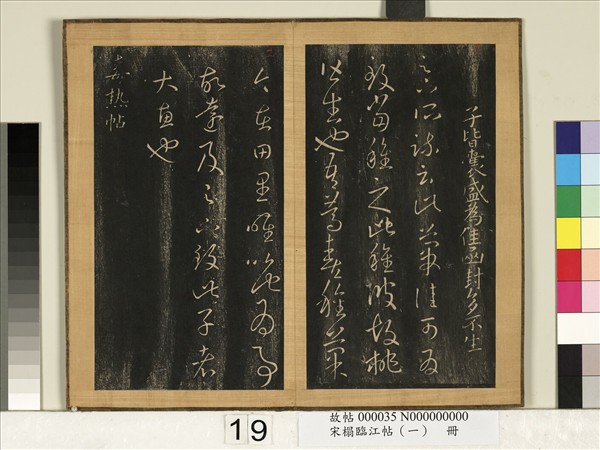 子皆囊盛為佳函封多不生
足下所疏云此菓佳可為
致子當種之此種彼胡桃
皆生也吾篤喜種菓
今在田里唯以此為事
故遠及足下致此子者
大惠也
毒熱帖
19
故帖 000035 N000000000
宋榻臨江帖(一) 冊